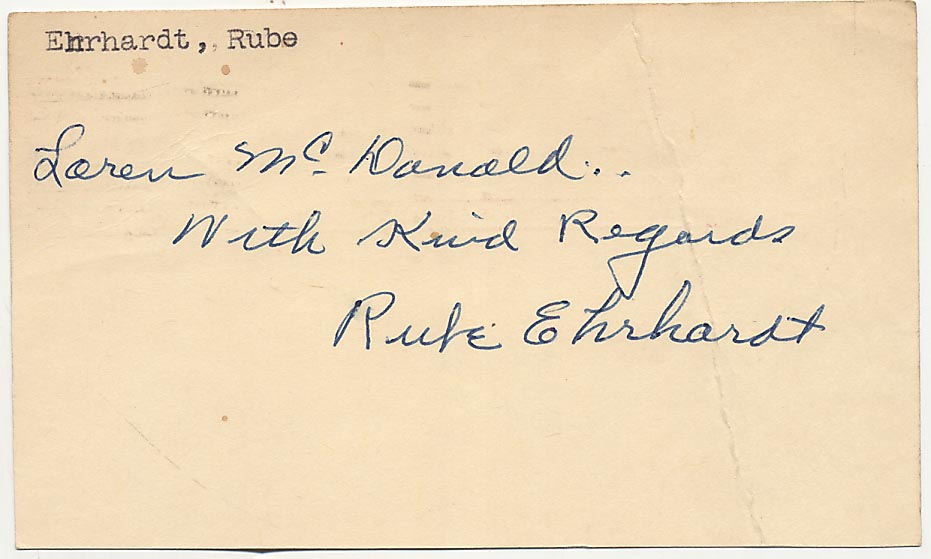 Ehrhardt, Rube
Loren Mc Donald..
With Kind Regards
Rube Ehrhardt